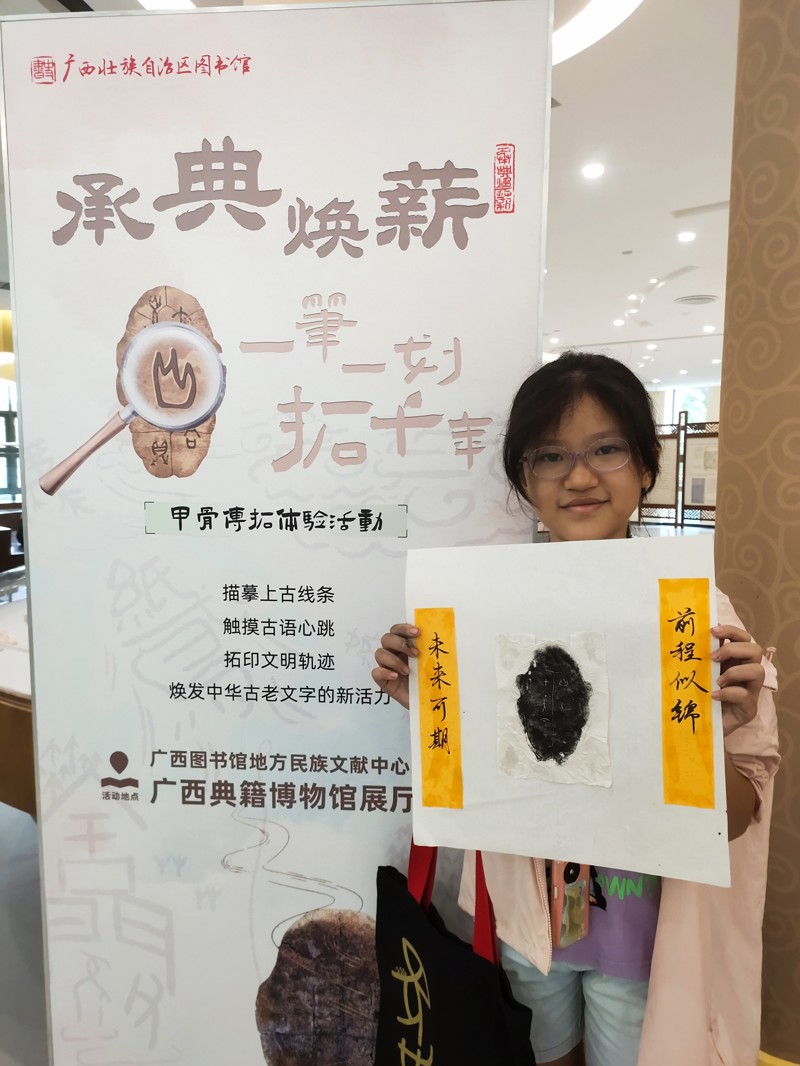 广西壮族自治区图书馆
承典焕薪
承典焕新
一筆一刻
拓千年
甲骨傳拓体驗活動
描摹上古线条
触摸古语心跳
拓印文明轨迹
焕发中华古老文字的新活力
活动地点
广西图书馆地方民族文献中心
广西典籍博物馆展厅
前程似锦
未来可期
OWN